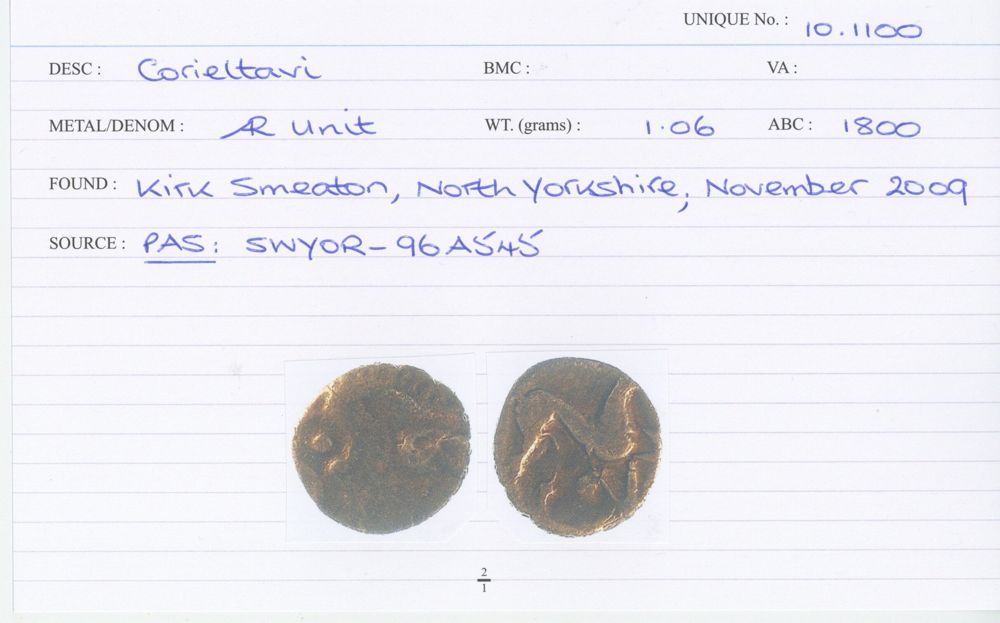 UNIQUE No. : 10.1100
DESC : Corieltavi BMC : VA :
METAL/DENOM : AR Unit WT. (grams) : 1.06 ABC : 1800
FOUND : Kirk Smeaton, North Yorkshire, November 2009
SOURCE : PAS: SWYOR-96A545
2
1